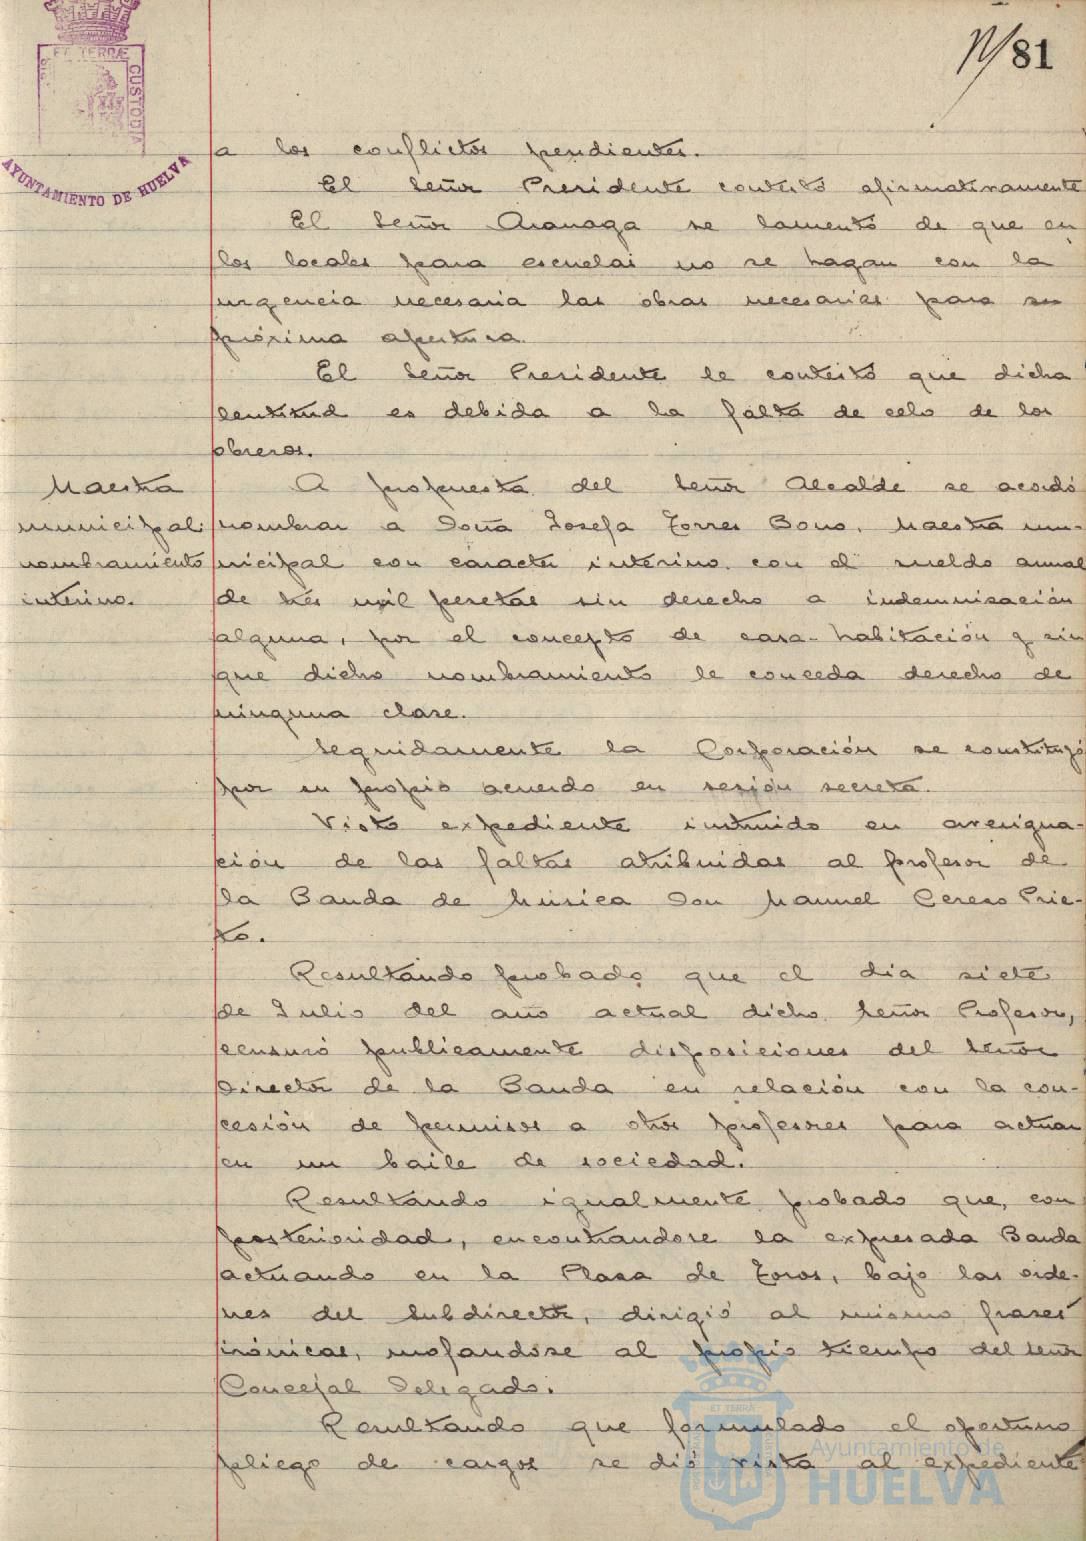 81
ET TERRÆ
CUSTODIA
AYUNTAMIENTO DE HUELVA
a los conflictos pendientes.
El Señor Presidente contestó afirmativamente
El Señor Aranaga se lamentó de que en
los locales para escuelas no se hagan con la
urgencia necesaria las obras necesarias para su
próxima apertura.
El Señor Presidente le contestó que dicha
lentitud es debida a la falta de celo de los
obreros.
Maestra
municipal.
nombramiento
interino.
A propuesta del Señor Alcalde se acordó
nombrar a Doña Josefa Torres Bono, Maestra mu-
nicipal con caracter interino, con el sueldo annal
de tres mil pesetas sin derecho a indemnisación
alguna, por el concepto de casa-habitación y sin
que dicho nombramiento le conceda derecho de
ninguna clase.
Seguidamente la Corporación se constituyó
por su propio acuerdo en sesión secreta.
Visto expediente instruido en averigua-
ción de las faltas atribuidas al profesor de
la Banda de Música Don Manuel Cerezo Prie-
to.
Resultando probado que el dia siete
de Julio del año actual dicho Señor Profesor,
censuró publicamente disposiciones del Señor
Director de la Banda en relación con la con-
cesión de permisos a otros profesores para actuar
en un baile de sociedad.
Resultando igualmente probado que, con
posterioridad, encontrandose la expresada Banda
actuando en la Plaza de Toros, bajo las orde-
nes del Subdirector, dirigió al mismo frases
irónicas, mofandose al propio tiempo del Señor
Concejal Delegado.
Resultando que formulado el oportuno
pliego de cargos se dió vista al expediente
Ayuntamiento de
HUELVA